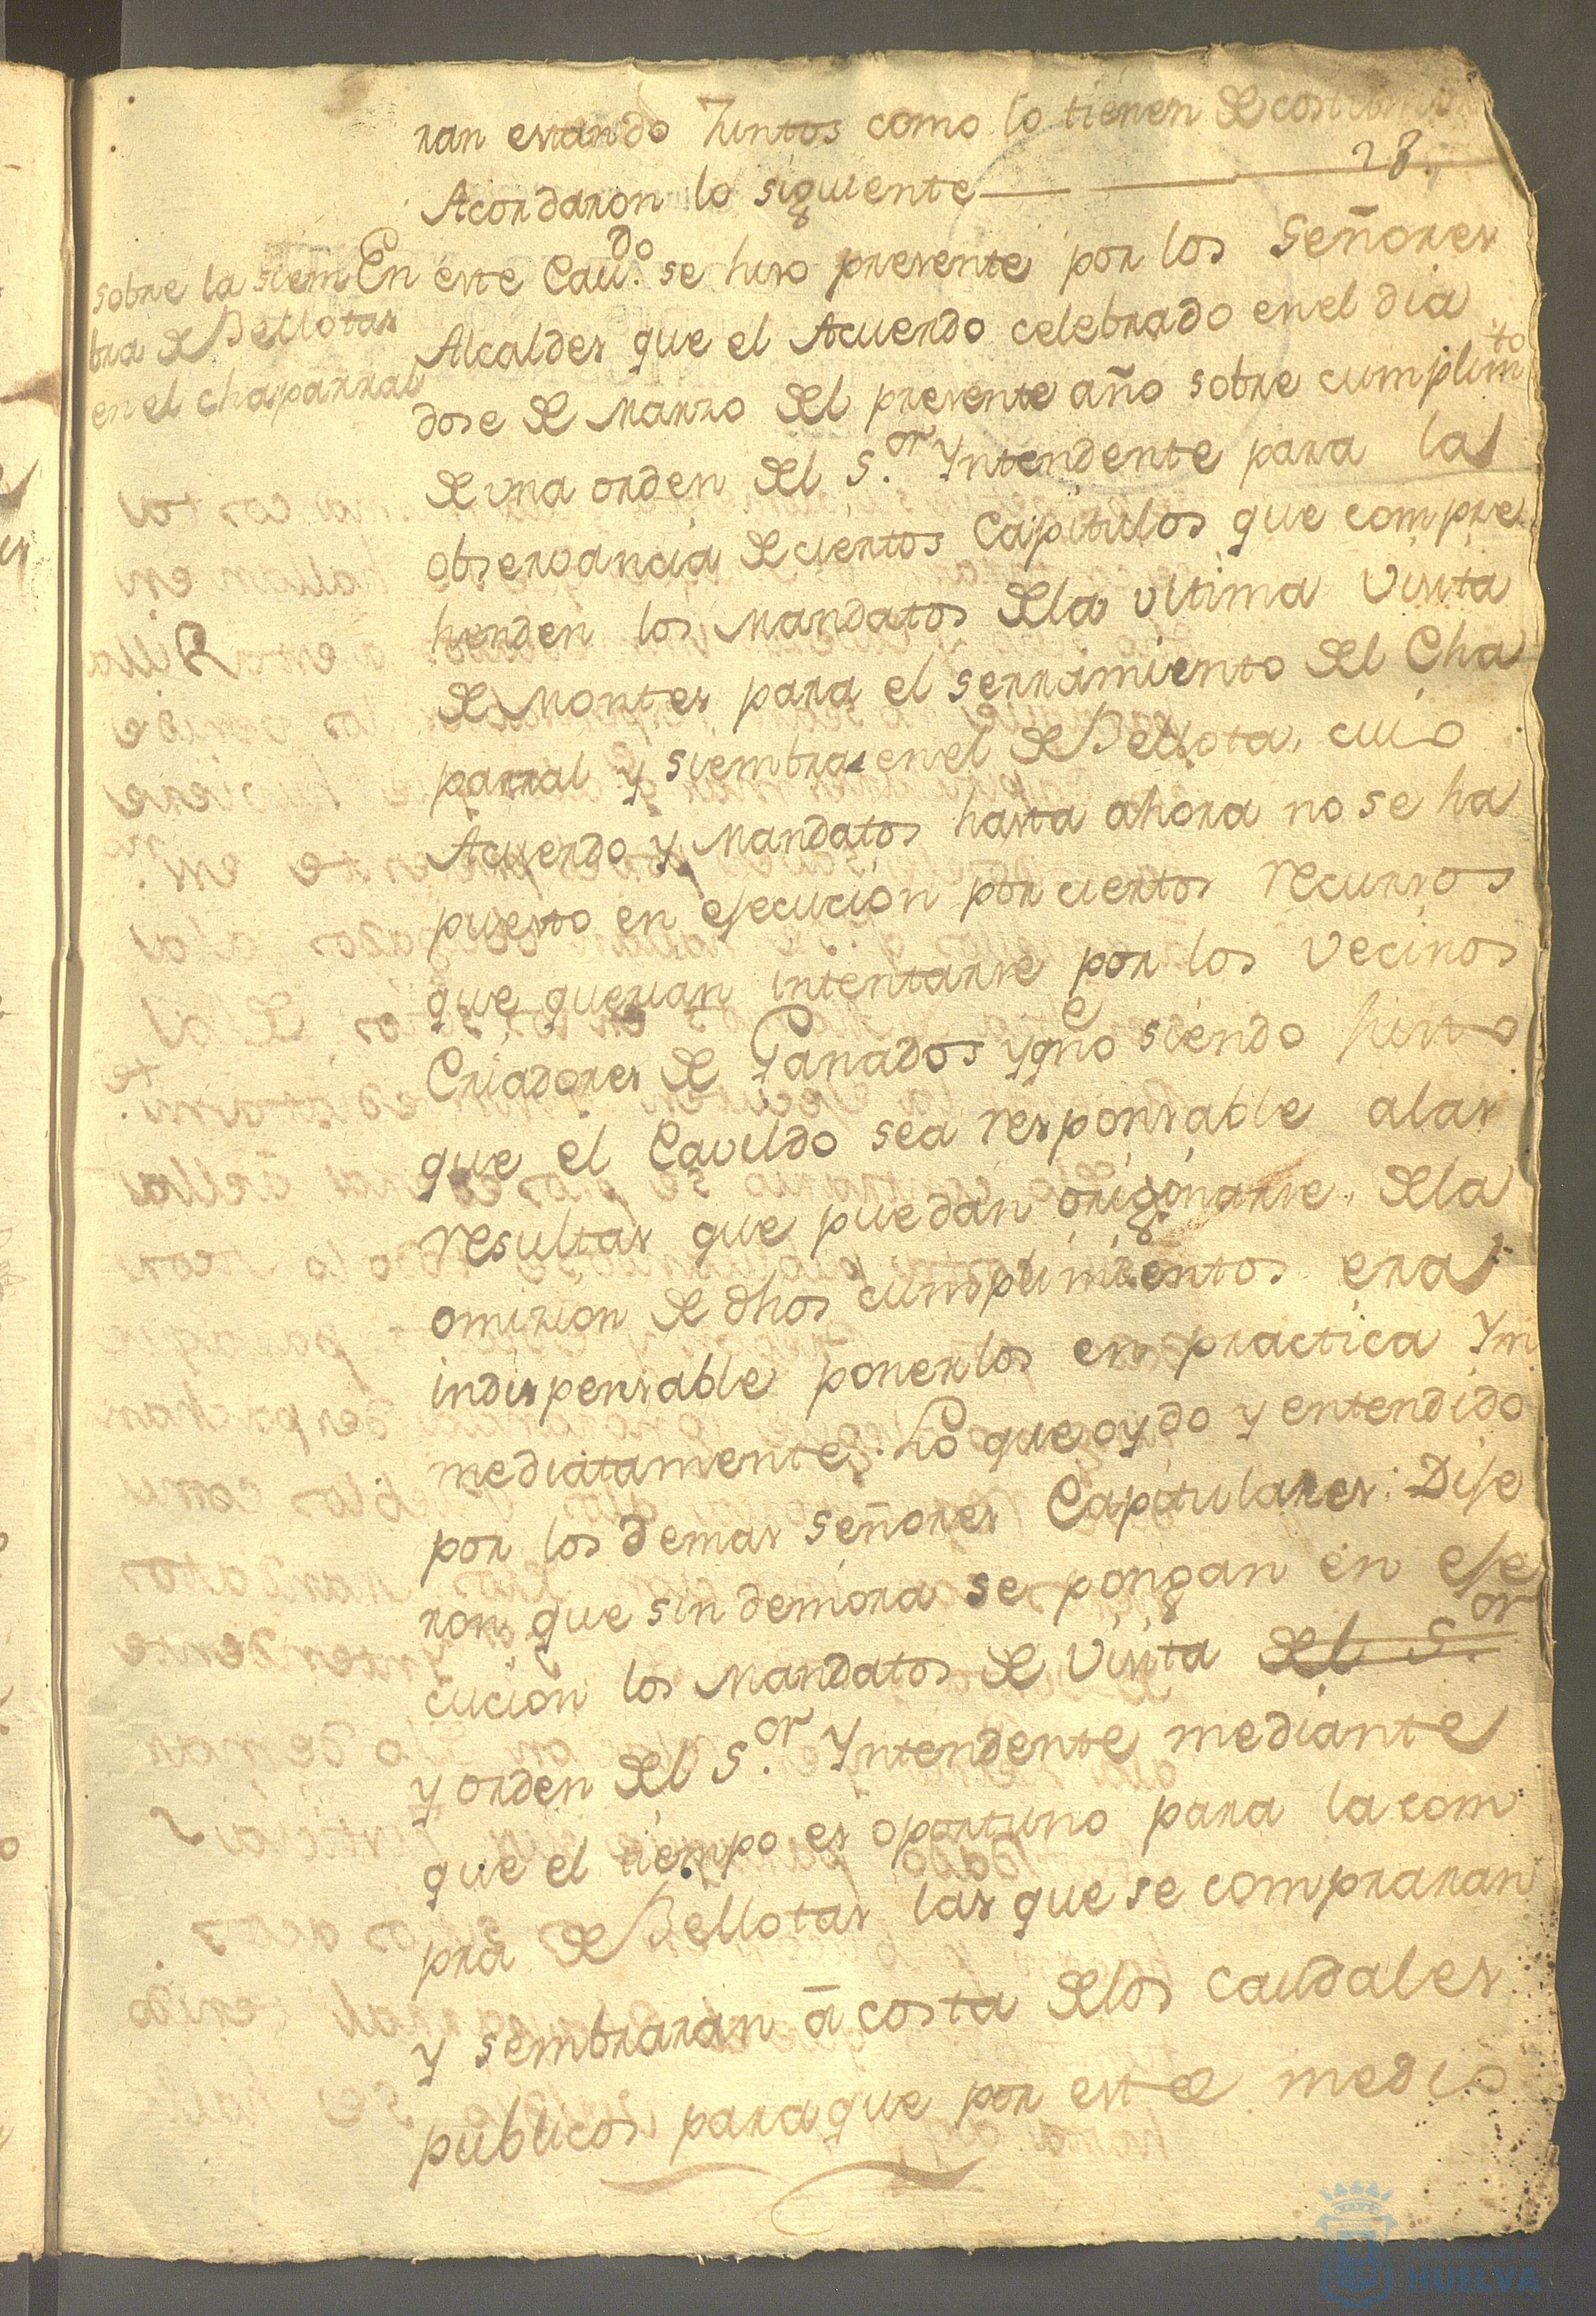 ran estando Juntos como lo tienen de costumbre
28.
Acordaron lo siguiente
sobre la siem
bra de Bellotas
en el chaparral
En este Cav.do se hiso presente por los Señores
Alcaldes que el Acuerdo celebrado en el dia
dose de Marzo del presente año sobre cumplimto
de una orden del S.or Yntendente para la
observancia de ciertos Capitulos que compre
henden los Mandatos dela ultima Visita
de Montes para el serramiento del Cha
parral y siembra en el de Bellota, cuio
Acuerdo y Mandatos hasta ahora no se ha
puesto en ejecucion por ciertos recursos
que querian intentarse por los Vecinos
Criadores de Ganados yqe no siendo justo
que el Cavildo sea responsable alas
resultas que puedan origonarse dela
omision de dhos cumplimientos era
indispensable ponerlos en practica Ym
mediatamente. Lo que oydo y entendido
por los demas señores Capitulares: Dije
ron que sin demora se pongan en eje
cucion los Mandatos de Visita del S.or
y orden del S.or Yntendente mediante
que el tiempo es oportuno para la com
pra de Bellotas las que se compraran
y sembraran â costa delos caudales
publicos para que por este medio
HUELVA